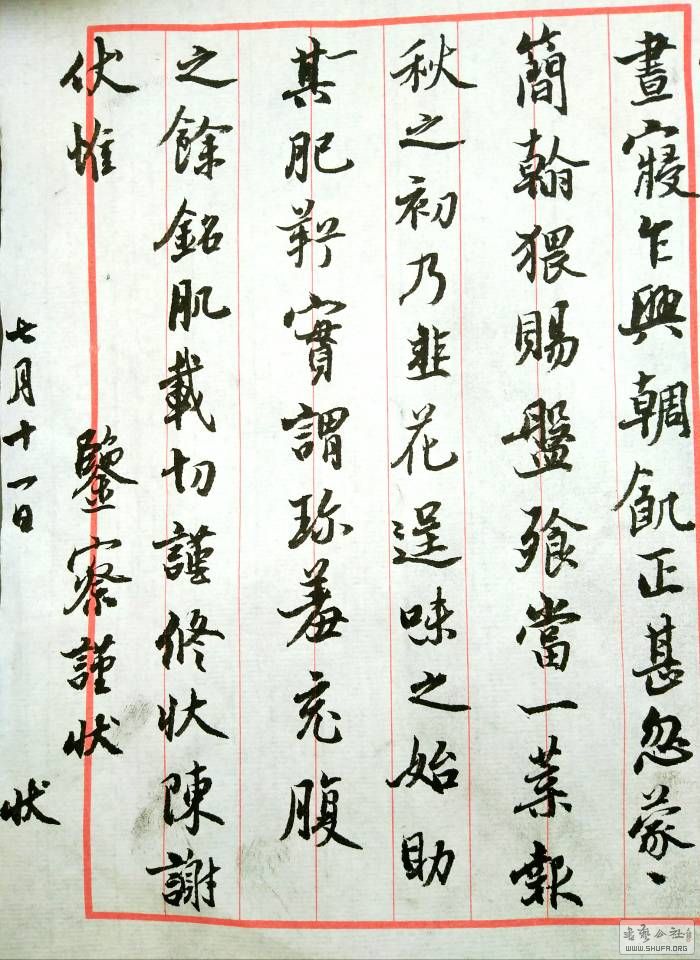 晝寢乍興輖飢正甚忽蒙、
簡翰猥賜盤飧當一葉報
秋之初乃韭花逞味之始助
其肥羜實謂珎羞充腹
之餘銘肌載切謹修狀陳謝
伏惟 鑒察謹狀
七月十一日 狀
WWW.SHUFA.ORG